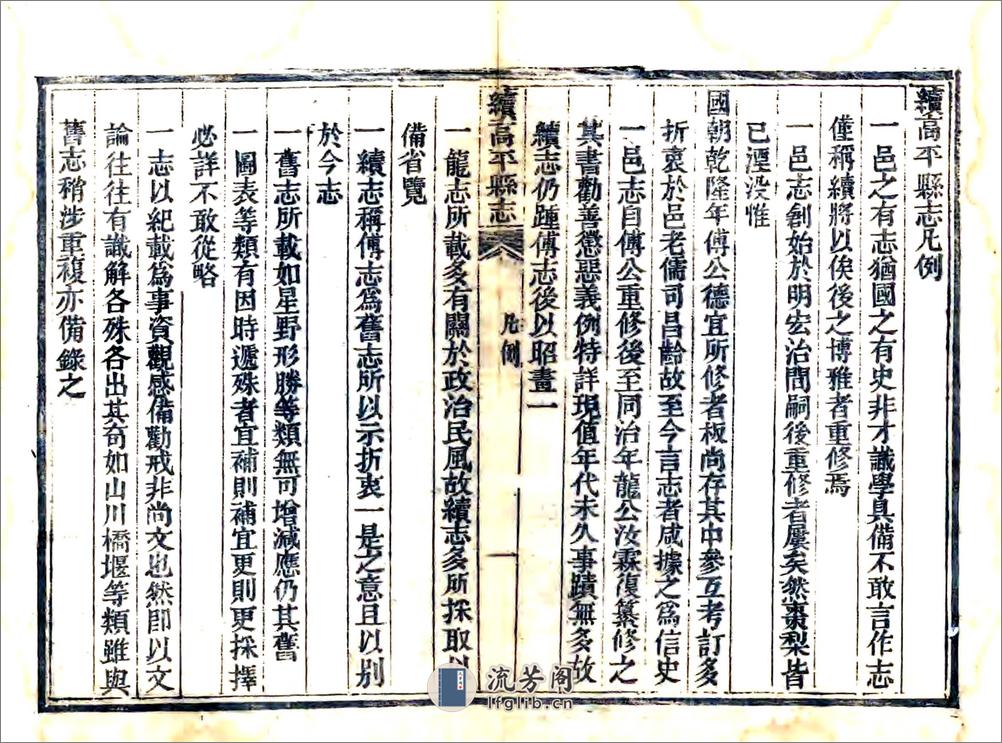 續高平縣志凡例
一邑之有志猶國之有史非才識學具備不敢言作志
僅稱續將以俟後之博雅者重修焉
一邑志創始於明宏治間嗣後重修者屢矣然棗梨皆
已湮没惟
國朝乾隆年傅公德宜所修者板尚存其中參互考訂多
折衷於邑老儒司昌齡故至今言志者咸據之爲信史
一邑志自傅公重修後至同治年龍公汝霖復纂修之
其書勸善懲惡義例特詳現值年代未久事蹟無多故
續志仍踵傅志後以昭畫一
續高平縣志
凡例
一
一龍志所載多有關於政治民風故續志多所採取以
備省覽
一續志稱傅志爲舊志所以示折衷一是之意且以别
於今志
一舊志所載如星野形勝等類無可增減應仍其舊
一圖表等類有因時遞殊者宜補則補宜更則更採擇
必詳不敢從略
一志以紀載爲事資觀感備勸戒非尚文也然卽以文
論往往有識解各殊各出其奇如山川橋堰等類雖與
舊志稍涉重複亦備錄之
流芳阁
lfglib.cn